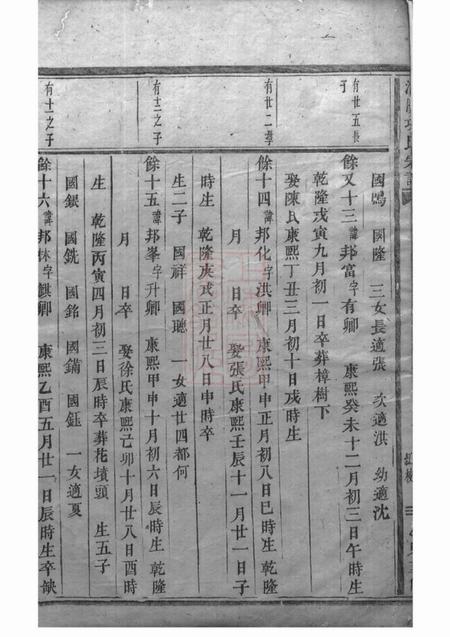 國鳴 國隆 三女長適張 次適洪 幼適沈
有廿五長
子
餘又十三諱邦富字有卿 康熙癸未十二月初三日午時生
乾隆戊寅九月初一日卒葬樟樹下
娶陳氏康熙丁丑三月初十日戌時生
有廿二孝
餘十四諱邦化字洪卿 康熙甲申正月初八日巳時生 乾隆
月 日卒 娶張氏康熙壬辰十一月廿一日子
時生 乾隆庚戌正月廿八日申時卒
生二子 國祥 國聰 一女適廿四都何
有十二之子
餘十五諱邦峯字升卿 康熙甲申十月初六日辰時生 乾隆
月 日卒 娶徐氏康熙己卯十月廿八日酉時
生 乾隆丙寅四月初三日辰時卒葬花墳頭 生五子
國銀 國銑 國銘 國鏞 國鈺 一女適夏
有十一之子
餘十六諱邦休字麒卿 康熙乙酉五月廿一日辰時生卒缺